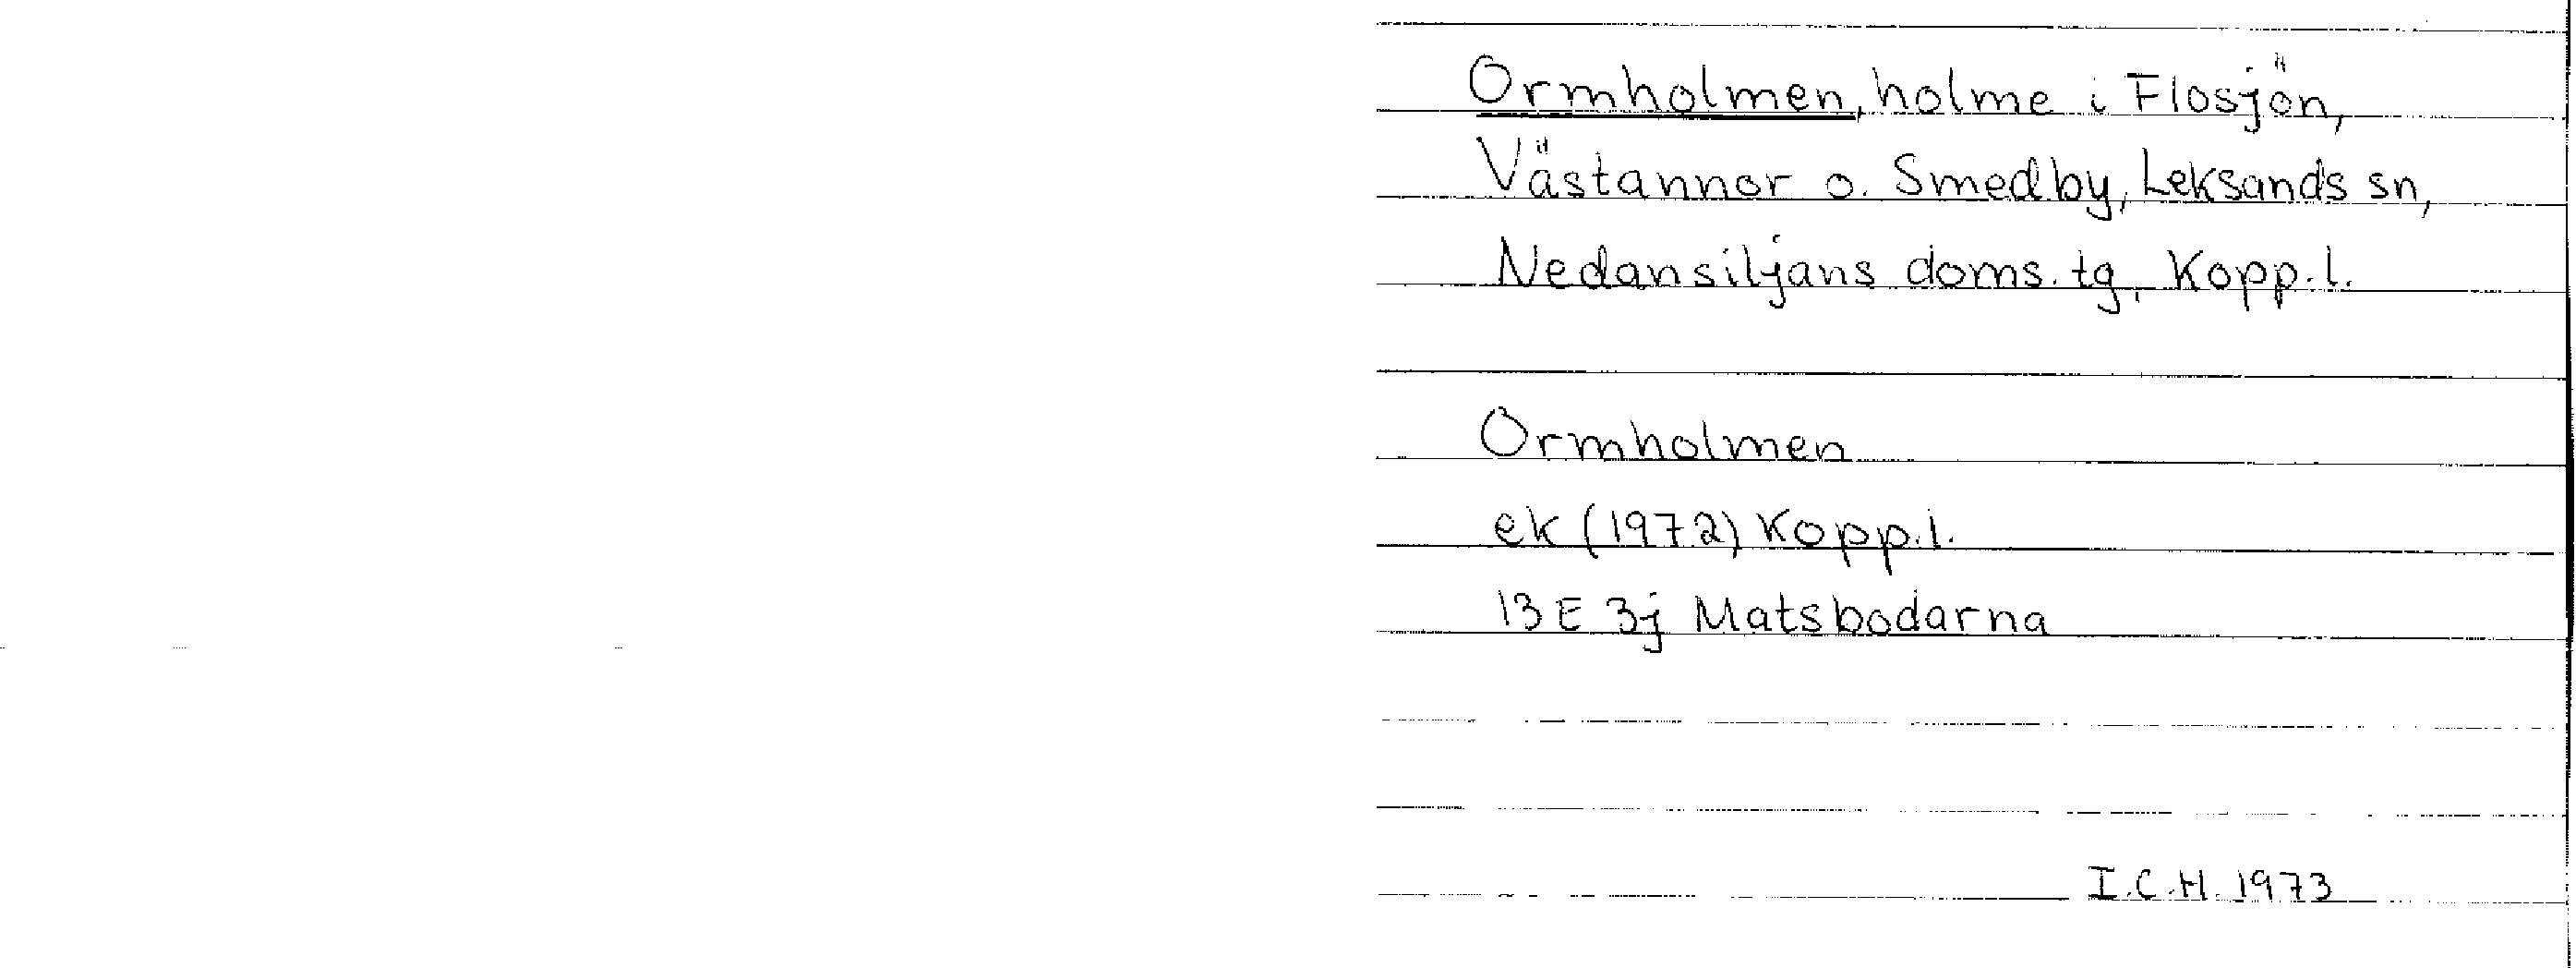 Ormholmen, holme i Flosjön,
Västannor o. Smedby, Leksands sn,
Nedansiljans doms. tg, Kopp. l.
Ormholmen
ek (1972) Kopp. l.
13E 3j Matsbodarna
I.C.H. 1973